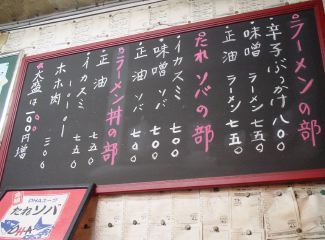 ラーメンの部
・辛子ぶっかけ 八〇〇
・味噌ラーメン 七五〇
・正油ラーメン 七五〇
たれソバの部
・イカスミ 七〇〇
・正油ソバ 七〇〇
・味噌ソバ 七〇〇
ラーメン丼の部
・正油 七五〇
・イカスミ 七五〇
ホホ肉
三〇〇
大盛は一〇〇円増
DHAスープ
たれソバ
DHA